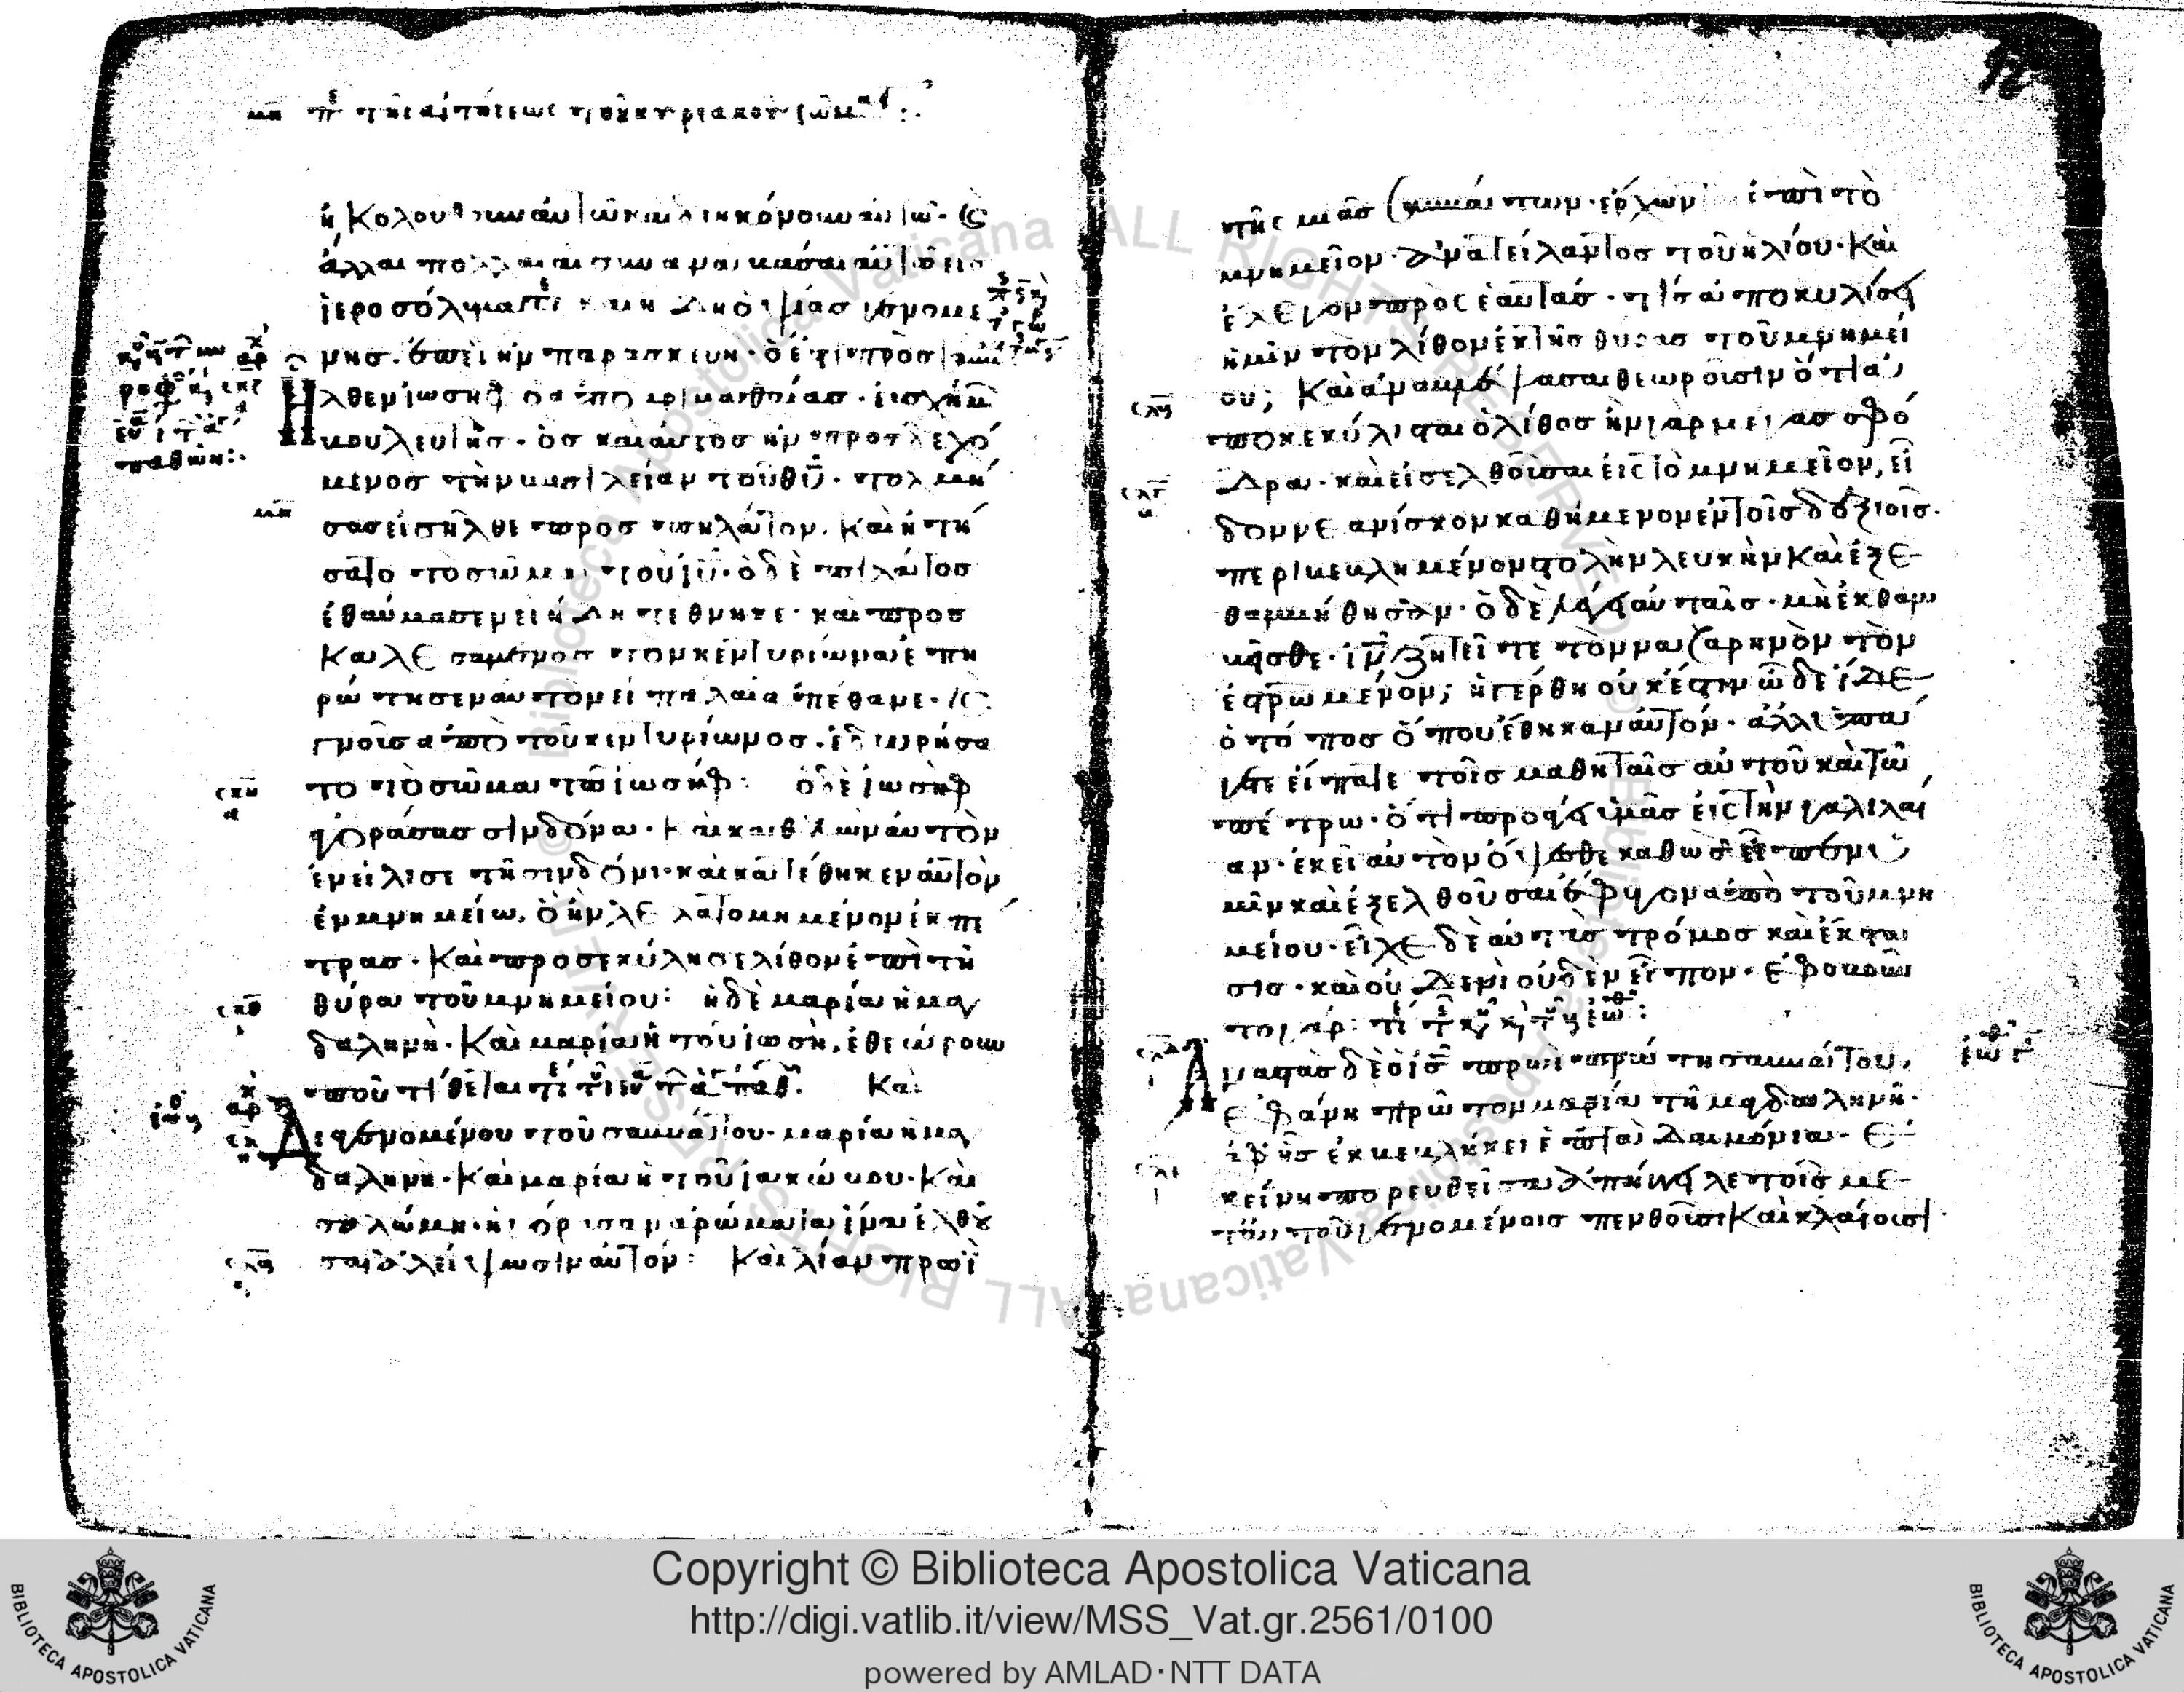 μη π̅ε̅ τῆς αἰτήσεως τοῦ κυριακοῦ σώμα̅τ̅
ἠκολούθουν αὐτῶ καὶ διηκόνουν αὐτῶ· κ̀
ἄλλαι πολλαὶ αἱ συναναβᾶσαι αὐτῶ εἰσ
ἱεροσόλυμα καὶ ἤδη ὀψίασ γενομέ
νησ. ἐπεὶ ἦν παρασκευὴ· ὅ ἐστι προσάββατον
ἦλθεν ἰωσὴφ ὁ ἀπὸ ἀριμαθαίασ· εὐσχήμων
βουλευτὴσ· ὃσ καὶ αὐτοσ ἦν προσδεχό
μενοσ τὴν βασιλείαν τοῦ θ̅υ̅· τολμή
σασ εἰσῆλθε προσ πιλάτον. καὶ ἠτή
σατο τὸ σῶμα τοῦ ι̅υ̅· ὁ δὲ πιλάτοσ
ἐθαύμασεν εἰ ἤδη τέθνηκε· καὶ προσ
καλεσάμενοσ τὸν κεντυρίωνα ἐπη
ρώτησεν αὐτὸν εἰ πάλαι ἀπέθανε· κ̀
γνοὺσ ἀπὸ τοῦ κεντυρίωνοσ. ἐδωρήσα
το τὸ σῶμα τῶ ἰωσὴφ: ὁ δὲ ἰωσὴφ
ἀγοράσασ σινδόνα· καὶ καθελὼν αὐτὸν
ἐνείλισε τῆ σινδόνι· καὶ κατέθηκεν αὐτὸν
ἐν μνημείω, ὃ ἦν λελατομημένον ἐκ πέ
τρασ· καὶ προσεκύλησε λίθον ἐπὶ τὴν
θύραν τοῦ μνημείου: ἡ δὲ μαρία ἡ μαγ
δαληνὴ· καὶ μαρία ἡ τοῦ ἰωσῆ, ἐθεώρουν
ποῦ τίθεται Καὶ
διαγενομένου τοῦ σαββάτου· μαρία ἡ μαγ
δαληνὴ· καὶ μαρία ἡ τοῦ ἰακώβου· καὶ
σαλώμη· ἠγόρασαν ἀρώματα ἵνα ἐλθοῦ
σαι ἀλείψωσιν αὐτόν: καὶ λίαν πρωῒ
τῆς μιᾶσ σαββάτων· ἔρχονται ἐπὶ τὸ
μνημεῖον· ἀνατείλαντοσ τοῦ ἡλίου· καὶ
ἔλεγον πρὸς ἑαυτάσ· τίσ ἀποκυλίσει
ἡμῖν τὸν λίθον ἐκ τῆσ θύρασ τοῦ μνημεί
ου; καὶ ἀναβλέψασαι θεωροῦσιν ὅτι ἀ
ποκεκύλισται ὁ λίθοσ ἦν γὰρ μέγασ σφό
δρα· καὶ εἰσελθοῦσαι εἰς τὸ μνημεῖον, εἶ
δον νεανίσκον καθήμενον ἐν τοῖσ δεξιοῖσ·
περιβεβλημένον στολὴν λευκὴν καὶ ἐξε
θαμβήθησαν· ὁ δὲ λέγει αὐταῖσ· μὴ ἐκθαμ
βεῖσθε· ι̅ν̅ ζητεῖτε τὸν ναζαρηνὸν τὸν
ἐσταυρωμένον; ἠγέρθη οὐκ ἔστιν ὧδε ἴδε
ὁ τόποσ ὅπου ἔθηκαν αὐτόν· ἀλλ' ὑπά
γετε εἴπατε τοῖσ μαθηταῖσ αὐτοῦ καὶ τῶ
πέτρω· ὅτι προάγει ὑμᾶσ εἰς τὴν γαλιλαί
αν· ἐκεῖ αὐτὸν ὄψεσθε καθὼσ εἶπεν ὑ
μῖν καὶ ἐξελθοῦσαι ἔφυγον ἀπὸ τοῦ μνη
μείου· εἶχε δὲ αὐτὰσ τρόμοσ καὶ ἔκστα
σισ· καὶ οὐδενὶ οὐδὲν εἶπον· ἐφοβοῦν
το γάρ:
Ἀναστὰσ δὲ ὁ ι̅σ̅ πρωὶ πρώτη σαββάτου,
ἐφάνη πρῶτον μαρία τῆ μαγδαληνῆ·
ἀφ' ἧσ ἐκβεβλήκει ἑπτὰ δαιμόνια· ἐ
κείνη πορευθεῖσα ἀπήγγειλε τοῖσ με
τ' αὐτοῦ γενομένοισ πενθοῦσι καὶ κλαίουσι
Copyright © Biblioteca Apostolica Vaticana
http://digi.vatlib.it/view/MSS_Vat.gr.2561/0100
powered by AMLAD·NTT DATA
BIBLIOTECA APOSTOLICA VATICANA
BIBLIOTECA APOSTOLICA VATICANA